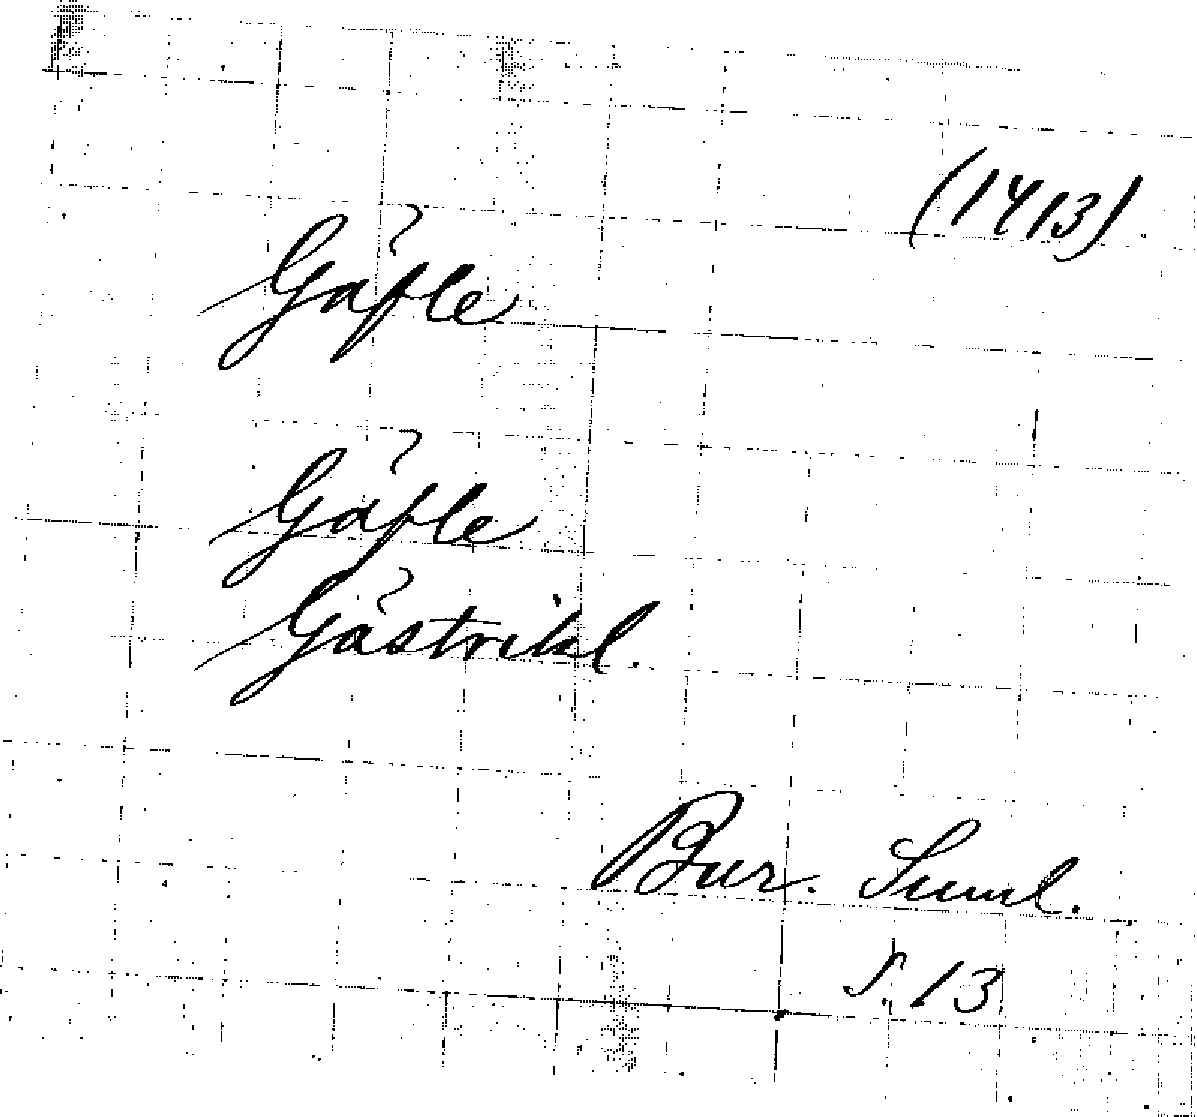 (1413)
Gäfle
Gäfle
Gästrikl.
Bur. Suml.
s. 13